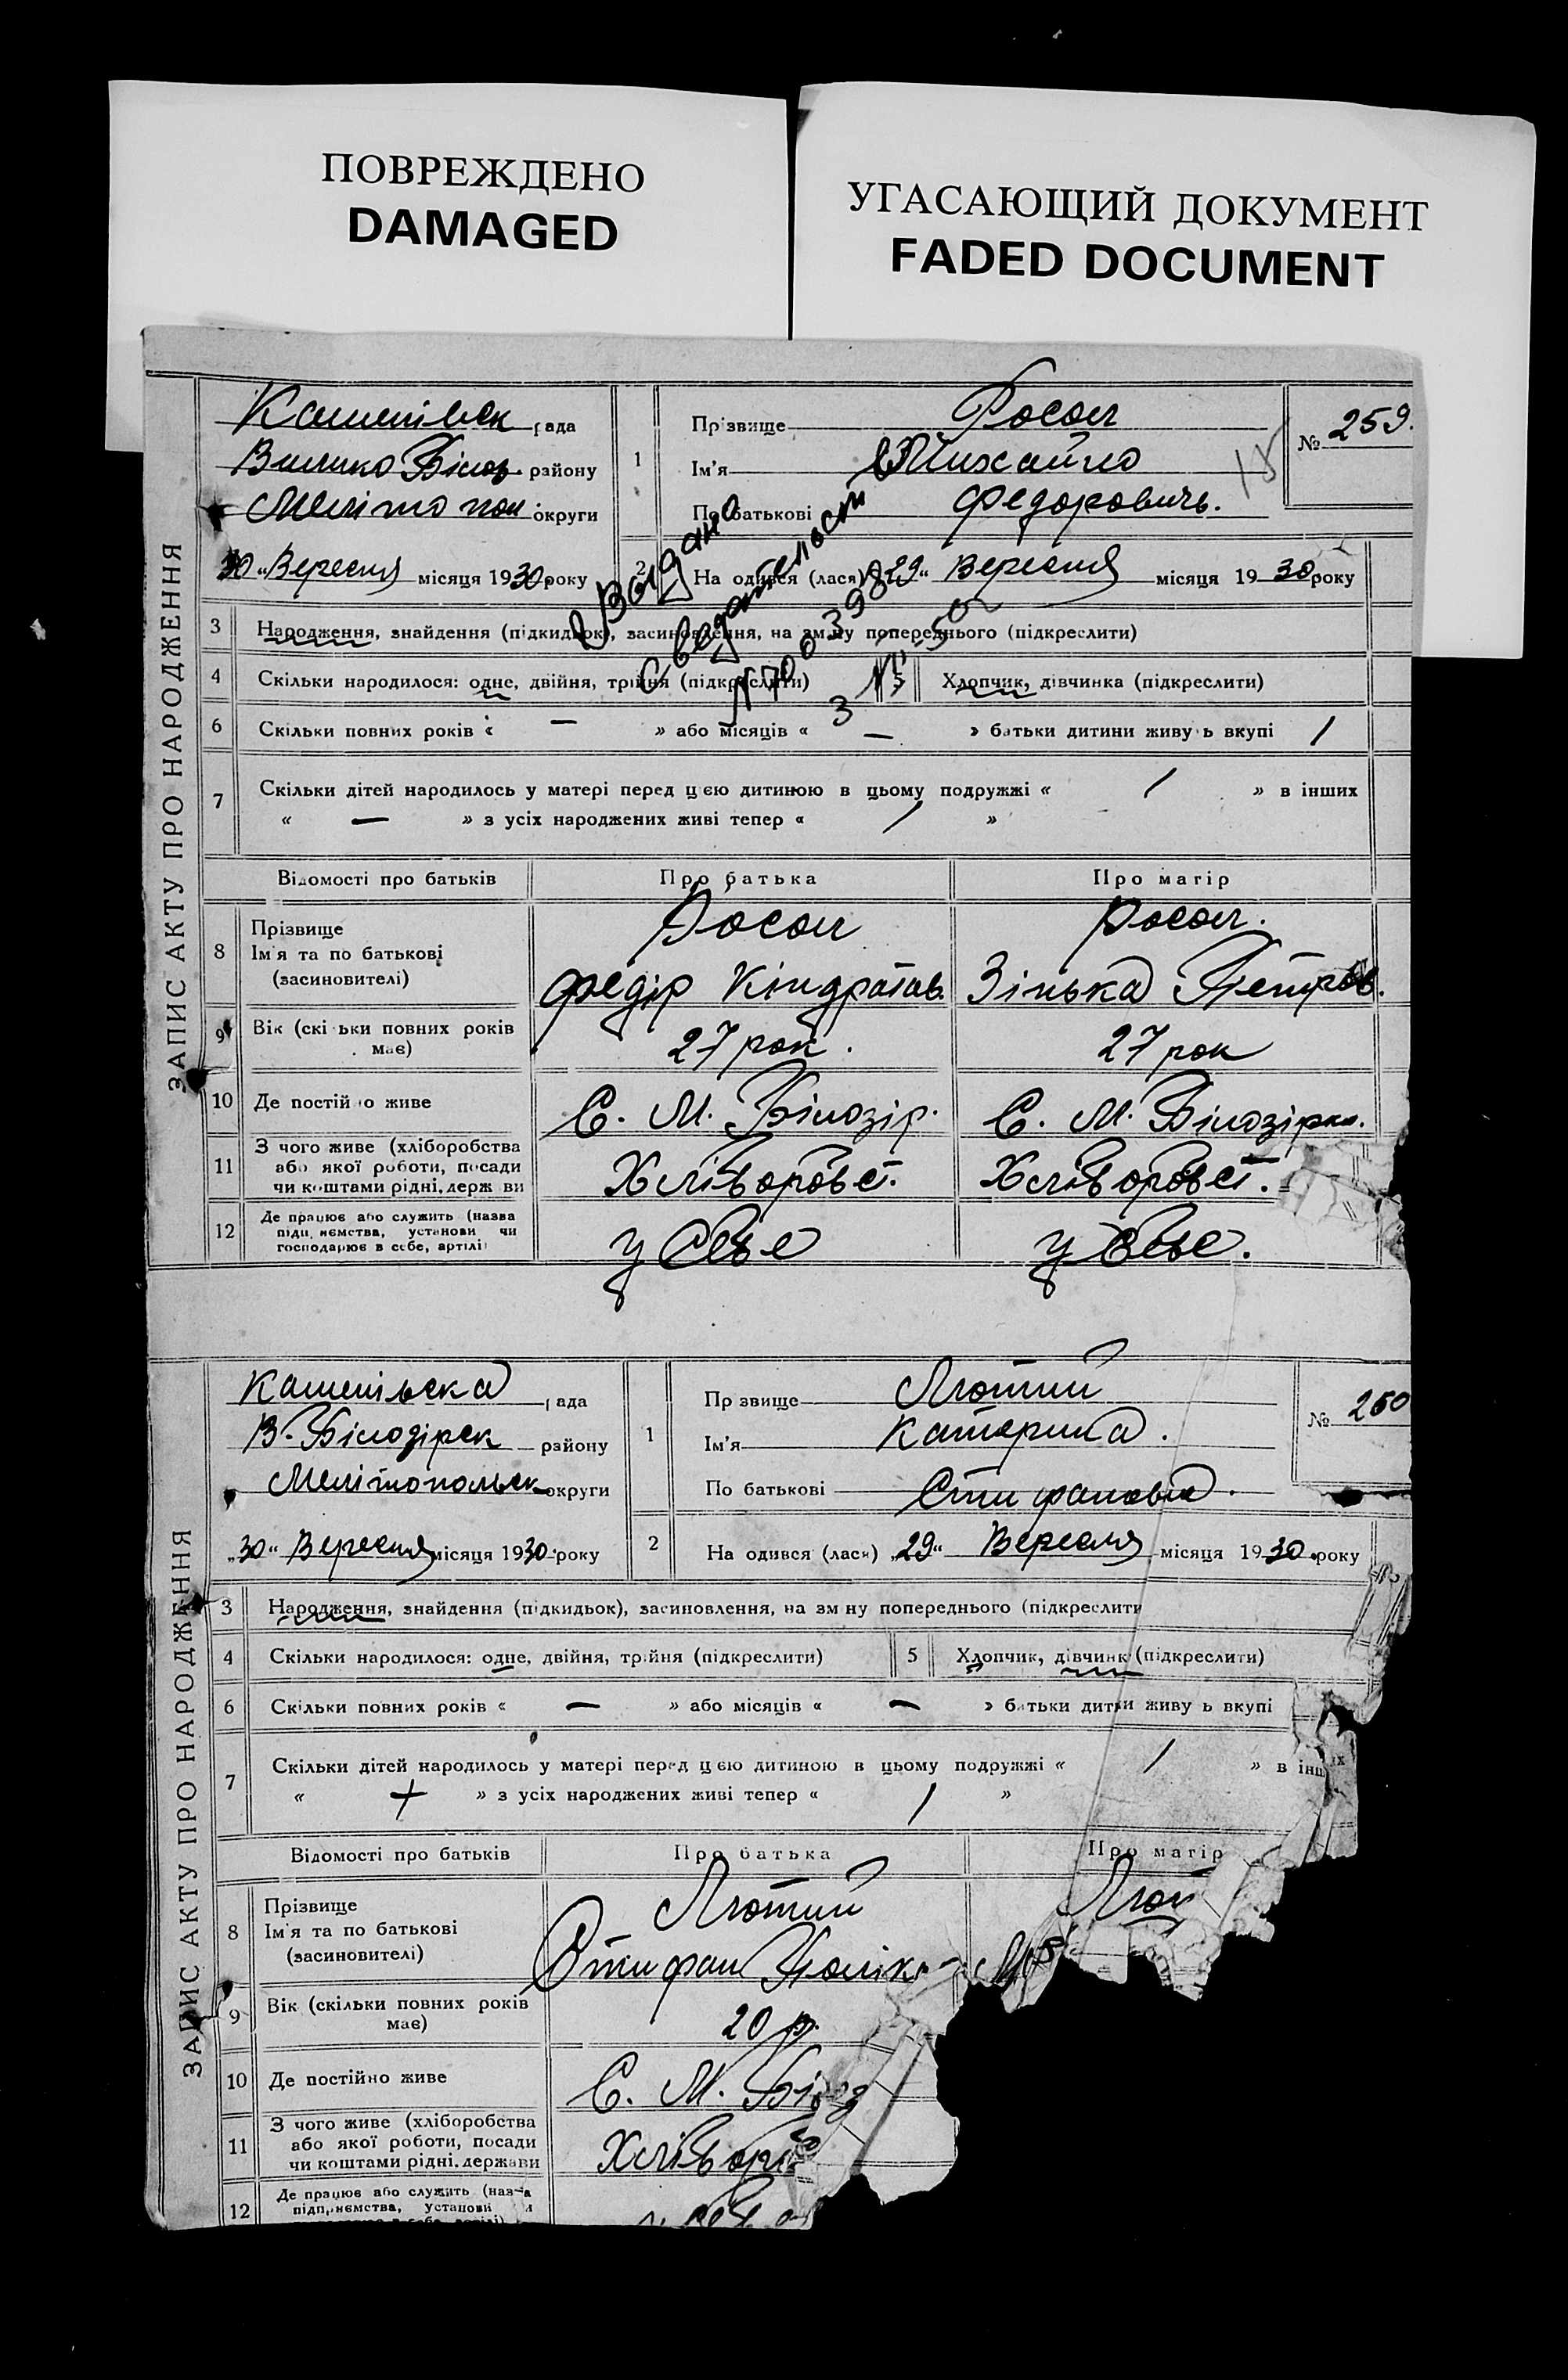 ПОВРЕЖДЕНО
DAMAGED
УГАСАЮЩИЙ ДОКУМЕНТ
FADED DOCUMENT
ЗАПИС АКТУ ПРО НАРОДЖЕННЯ
рада
району
Мелітопол округи
"30" Вересня місяця 1930 року
1
Прізвище Росол
Ім'я Михайло
По батькові Федоровичь.
№ 259.
18
2 На одився (лася) "29" Вересня місяця 1930 року
Выдано
Сведательст
3 Народження, знайдення (підкидьок), засиновлення, на зміну попереднього (підкреслити)
4 Скільки народилося: одне, двійня, трійня (підкреслити) 5 Хлопчик, дівчинка (підкреслити)
6 Скільки повних років « — » або місяців « — » батьки дитини живуть вкупі /
7 Скільки дітей народилось у матері перед цією дитиною в цьому подружжі « / » в інших
« — » з усіх народжених живі тепер « / »
Відомості про батьків Про батька Про матір
8 Прізвище
Ім'я та по батькові
(засиновителі)
Росол Росол.
Федір Кіндратов. Зінька Петров.
9 Вік (скільки повних років
має)
27 рок. 27 рок
10 Де постійно живе С. М. Білозір. С. М. Білозірка.
11 З чого живе (хліборобства
або якої роботи, посади
чи коштами рідні, держави
Хліборобст. Хліборобст.
12 Де працює або служить (назва
підприємства, установи чи
господарює в себе, артілі)
у себе у себе.
ЗАПИС АКТУ ПРО НАРОДЖЕННЯ
рада
В. Білозірск району
Мелітопольск округи
"30" Вересня місяця 1930 року
1
Прізвище Лютий
Ім'я Катерина.
По батькові Стифановна.
№ 260
2 На одився (лася) "29" Вересня місяця 1930 року
3 Народження, знайдення (підкидьок), засиновлення, на зміну попереднього (підкреслити
4 Скільки народилося: одне, двійня, трійня (підкреслити) 5 Хлопчик, дівчинк (підкреслити)
6 Скільки повних років « — » або місяців « — » батьки дитини живуть вкупі
7 Скільки дітей народилось у матері перед цією дитиною в цьому подружжі « / » в інших
« + » з усіх народжених живі тепер « / »
Відомості про батьків Про батька Про матір
8 Прізвище
Ім'я та по батькові
(засиновителі)
Лютий Лют
Стифан
9 Вік (скільки повних років
має)
20 р.
10 Де постійно живе С. М. Білоз
11 З чого живе (хліборобства
або якої роботи, посади
чи коштами рідні, держави
Хлібороб
12 Де працює або служить (назва
підприємства, установи